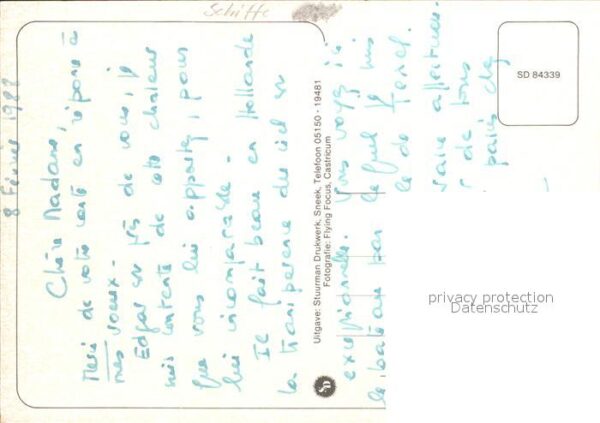 Schiffe
8 Février 1988
Chère Madame,
Merci de votre carte en réponse à
mes voeux.
Edgar est près de vous, je
suis contente de cette chaleur
que vous lui apportez, pour
lui incomparable.
Il fait beau en Hollande
la transparence du ciel est
exceptionnelle. Vous voyez ici
le bateau par lequel
le de
de tous
Uitgave: Stuurman Drukwerk, Sneek, Telefoon 05150 - 19481
Fotografie: Flying Focus, Castricum
SD
SD 84339
privacy protection
Datenschutz